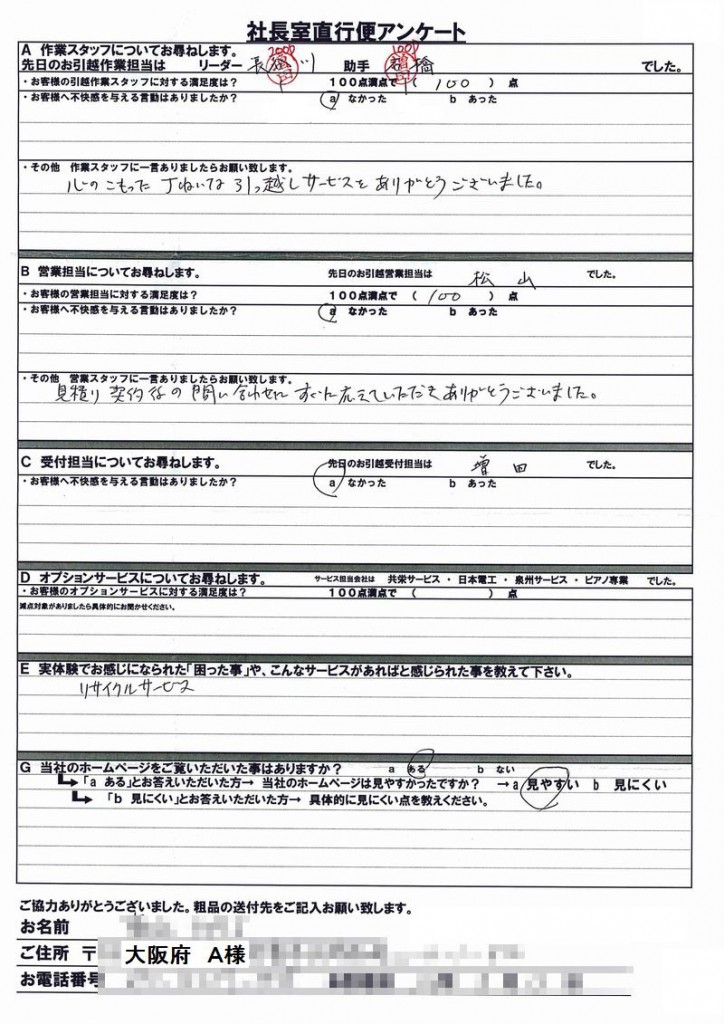 社長室直行便アンケート
A 作業スタッフについてお尋ねします。
先日のお引越作業担当は リーダー 長谷川 助手 橋 でした。
・お客様の引越作業スタッフに対する満足度は? 100点満点で( 100 ) 点
・お客様へ不快感を与える言動はありましたか? a なかった b あった
・その他 作業スタッフに一言ありましたらお願い致します。
心のこもった 丁ねいな 引っ越しサービスを ありがとうございました。
B 営業担当についてお尋ねします。 先日のお引越営業担当は 松山 でした。
・お客様の営業担当に対する満足度は? 100点満点で ( 100 ) 点
・お客様へ不快感を与える言動はありましたか? a なかった b あった
・その他 営業スタッフに一言ありましたらお願い致します。
見積り 契約後の 問い合わせに すぐに応えていただき ありがとうございました。
C 受付担当についてお尋ねします。 先日のお引越受付担当は 増田 でした。
・お客様へ不快感を与える言動はありましたか? a なかった b あった
D オプションサービスについてお尋ねします。 サービス担当会社は 共栄サービス ・ 日本電工 ・ 泉州サービス ・ ピアノ専業 でした。
・お客様のオプションサービスに対する満足度は? 100点満点で ( ) 点
減点対象がありましたら具体的にお聞かせください。
E 実体験でお感じになられた「困った事」や、こんなサービスがあればと感じられた事を教えて下さい。
リサイクルサービス
G 当社のホームページをご覧いただいた事はありますか? a ある b ない
「a ある」とお答えいただいた方→ 当社のホームページは見やすかったですか? →a 見やすい b 見にくい
「b 見にくい」とお答えいただいた方→ 具体的に見にくい点を教えください。
ご協力ありがとうございました。粗品の送付先をご記入お願い致します。
お名前
ご住所 〒 大阪府 A様
お電話番号